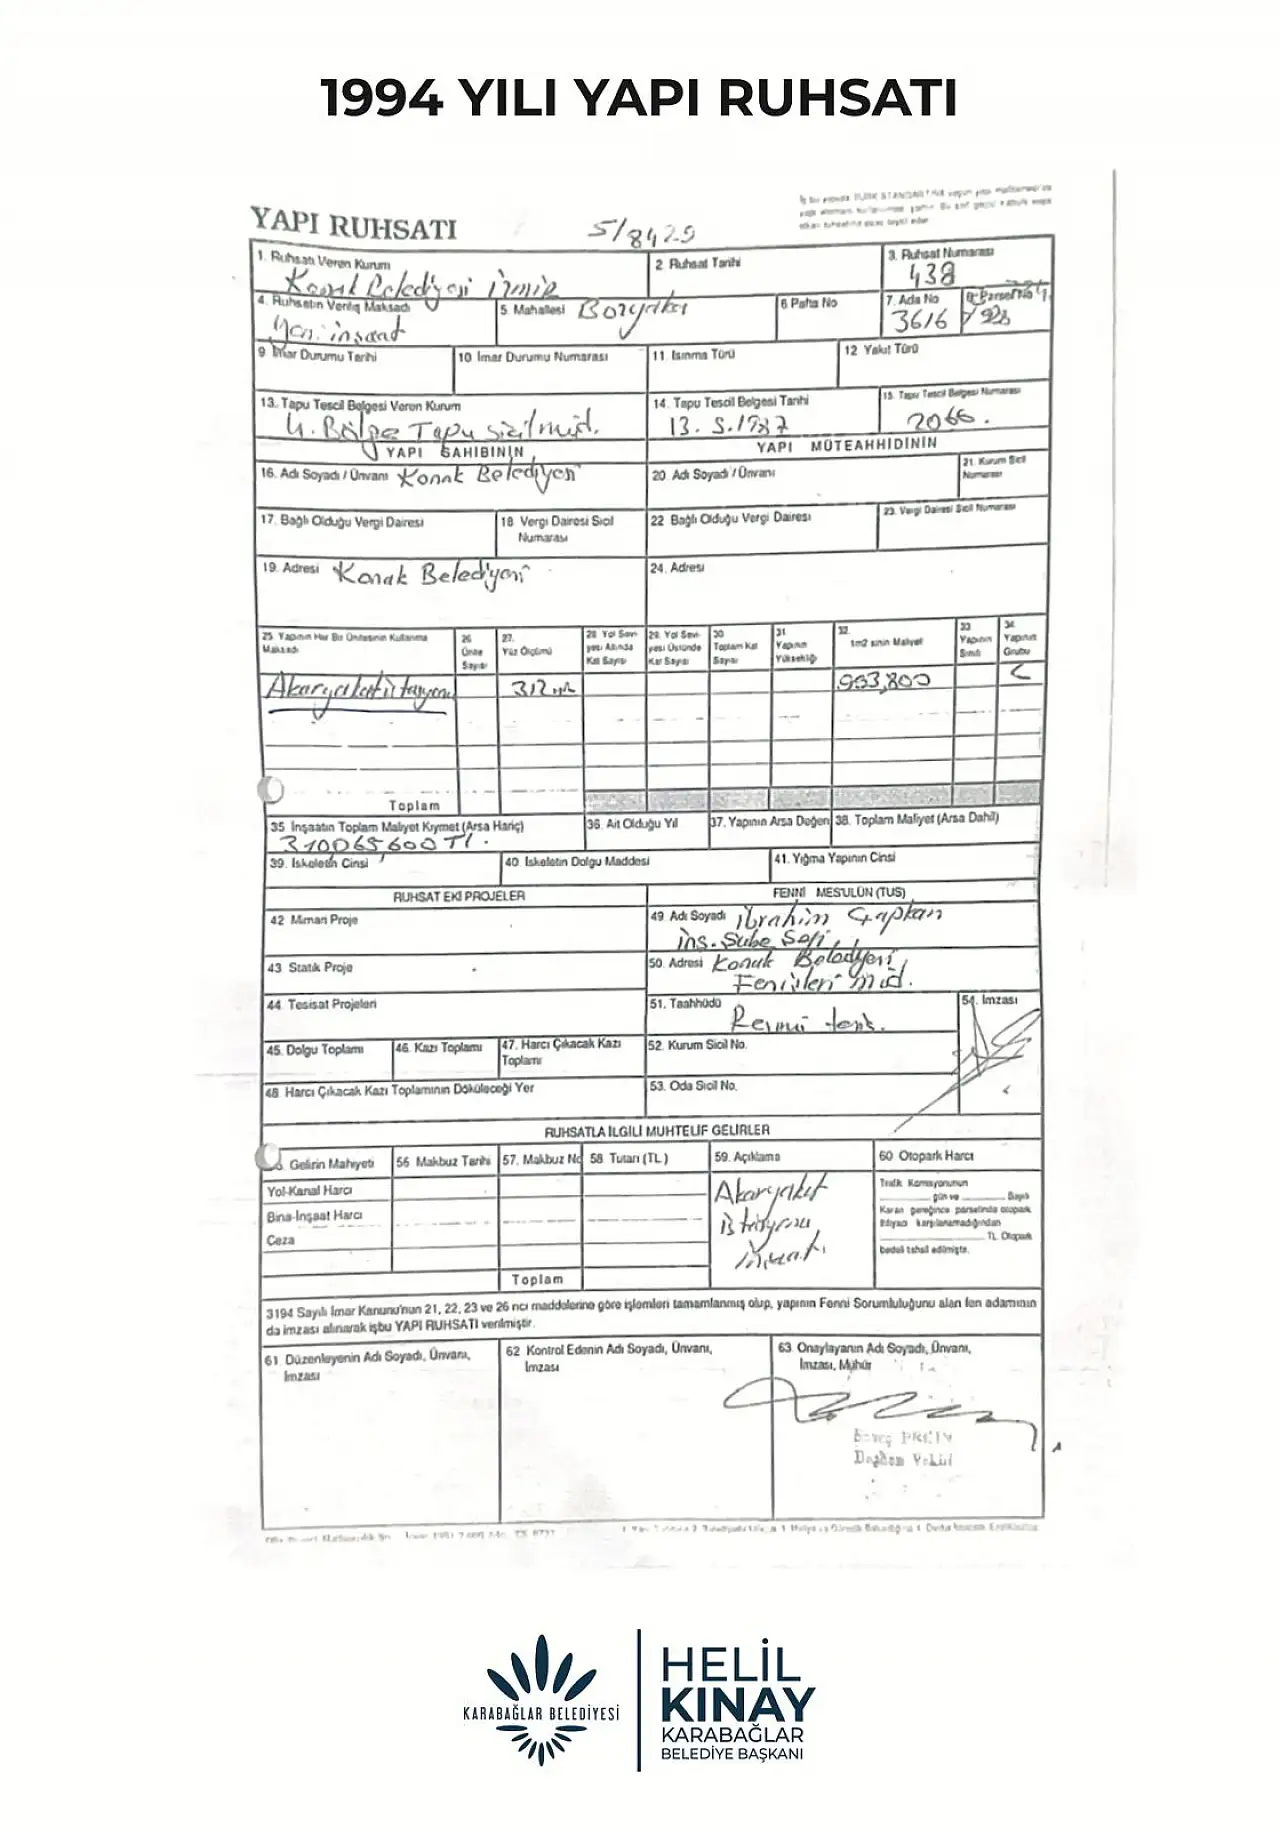 1994 YILI YAPI RUHSATI
YAPI RUHSATI
5/8425
1. Ruhsatı Veren Kurum
Konak Belediyesi İzmir
2 Ruhsat Tarihi
3. Ruhsat Numarası
438
4. Ruhsatın Veriliş Maksadı
Yeni inşaat
5. Mahallesi Bozyaka
6 Pafta No
7. Ada No
3616
8. Parsel No
9 İmar Durumu Tarihi
10 İmar Durumu Numarası
11. Isınma Türü
12 Yakıt Türü
13. Tapu Tescil Belgesi Veren Kurum
4. Bölge Tapu Sicil Müd.
14. Tapu Tescil Belgesi Tarihi
13. 5.1987
15. Tapu Tescil Belgesi Numarası
2066.
YAPI SAHİBİNİN
YAPI MÜTEAHHİDİNİN
16. Adı Soyadı / Ünvanı Konak Belediyesi
20. Adı Soyadı / Ünvanı
21. Kurum Sicil
Numarası
17. Bağlı Olduğu Vergi Dairesi
18 Vergi Dairesi Sicil
Numarası
22 Bağlı Olduğu Vergi Dairesi
23. Vergi Dairesi Sicil Numarası
19. Adresi Konak Belediyesi
24. Adresi
25. Yapının Her Bir Ünitesinin Kullanma
Maksadı
26
Ünite
Sayısı
27.
Yüz Ölçümü
28 Yol Sevi-
yesi Altında
Kat Sayısı
29. Yol Sevi-
yesi Üstünde
Kat Sayısı
30
Toplam Kat
Sayısı
31
Yapının
Yüksekliği
32.
1m2 sinin Maliyeti
33
Yapının
Sınıfı
34.
Yapının
Grubu
Akaryakıt İstasyonu
312 m2
993,800
C
Toplam
35 İnşaatın Toplam Maliyet Kıymet (Arsa Hariç)
310065600 TL.
36. Ait Olduğu Yıl
37. Yapının Arsa Değeri
38. Toplam Maliyet (Arsa Dahil)
39. İskeletin Cinsi
40. İskeletin Dolgu Maddesi
41. Yığma Yapının Cinsi
RUHSAT EKİ PROJELER
FENNİ MES'ULÜN (TUS)
42 Mimari Proje
49 Adı Soyadı İbrahim Çapkan
İnş. Şube Şefi
43 Statik Proje
50. Adresi Konak Belediyesi
Fenişleri Müd.
44 Tesisat Projeleri
51. Taahhüdü
Resmi
54. İmzası
45. Dolgu Toplamı
46. Kazı Toplamı
47. Harcı Çıkacak Kazı
Toplamı
52. Kurum Sicil No.
48. Harcı Çıkacak Kazı Toplamının Döküleceği Yer
53. Oda Sicil No.
RUHSATLA İLGİLİ MUHTELİF GELİRLER
Gelirin Mahiyeti
56 Makbuz Tarihi
57. Makbuz No
58 Tutarı (TL )
59. Açıklama
60 Otopark Harcı
Yol-Kanal Harcı
Bina-İnşaat Harcı
Ceza
Toplam
Akaryakıt
İstasyonu
İnşaatı
Trafik Komisyonunun
gün ve Sayılı
Kararı gereğince parselinde otopark
ihtiyacı karşılanamadığından
TL Otopark
bedeli tahsil edilmiştir.
3194 Sayılı İmar Kanunu'nun 21, 22, 23 ve 26 ncı maddelerine göre işlemleri tamamlanmış olup, yapının Fenni Sorumluluğunu alan fen adamının
da imzası alınarak işbu YAPI RUHSATI verilmiştir.
61. Düzenleyenin Adı Soyadı, Ünvanı,
İmzası
62 Kontrol Edenin Adı Soyadı, Ünvanı,
İmzası
63. Onaylayanın Adı Soyadı, Ünvanı,
İmzası, Mühür
KARABAĞLAR BELEDİYESİ
HELİL
KINAY
KARABAĞLAR
BELEDİYE BAŞKANI